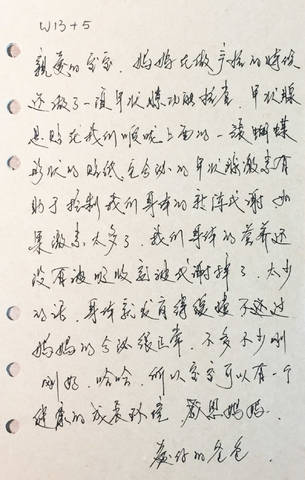 W13+5
亲爱的宝宝，妈妈在做产检的时候
还做了一项甲状腺功能检查，甲状腺
是贴在我们喉咙上面的一颗蝴蝶
形状的腺体，它分泌的甲状腺激素有
助于控制我们身体的新陈代谢，如
果激素太多了，我们身体的营养还
没有被吸收就被代谢掉了，太少
的话，身体就发育缓慢，不过
妈妈的分泌很正常，不多不少刚
刚好，哈哈，所以宝宝可以有一个
健康的成长环境，感恩妈妈。
爱你的爸爸